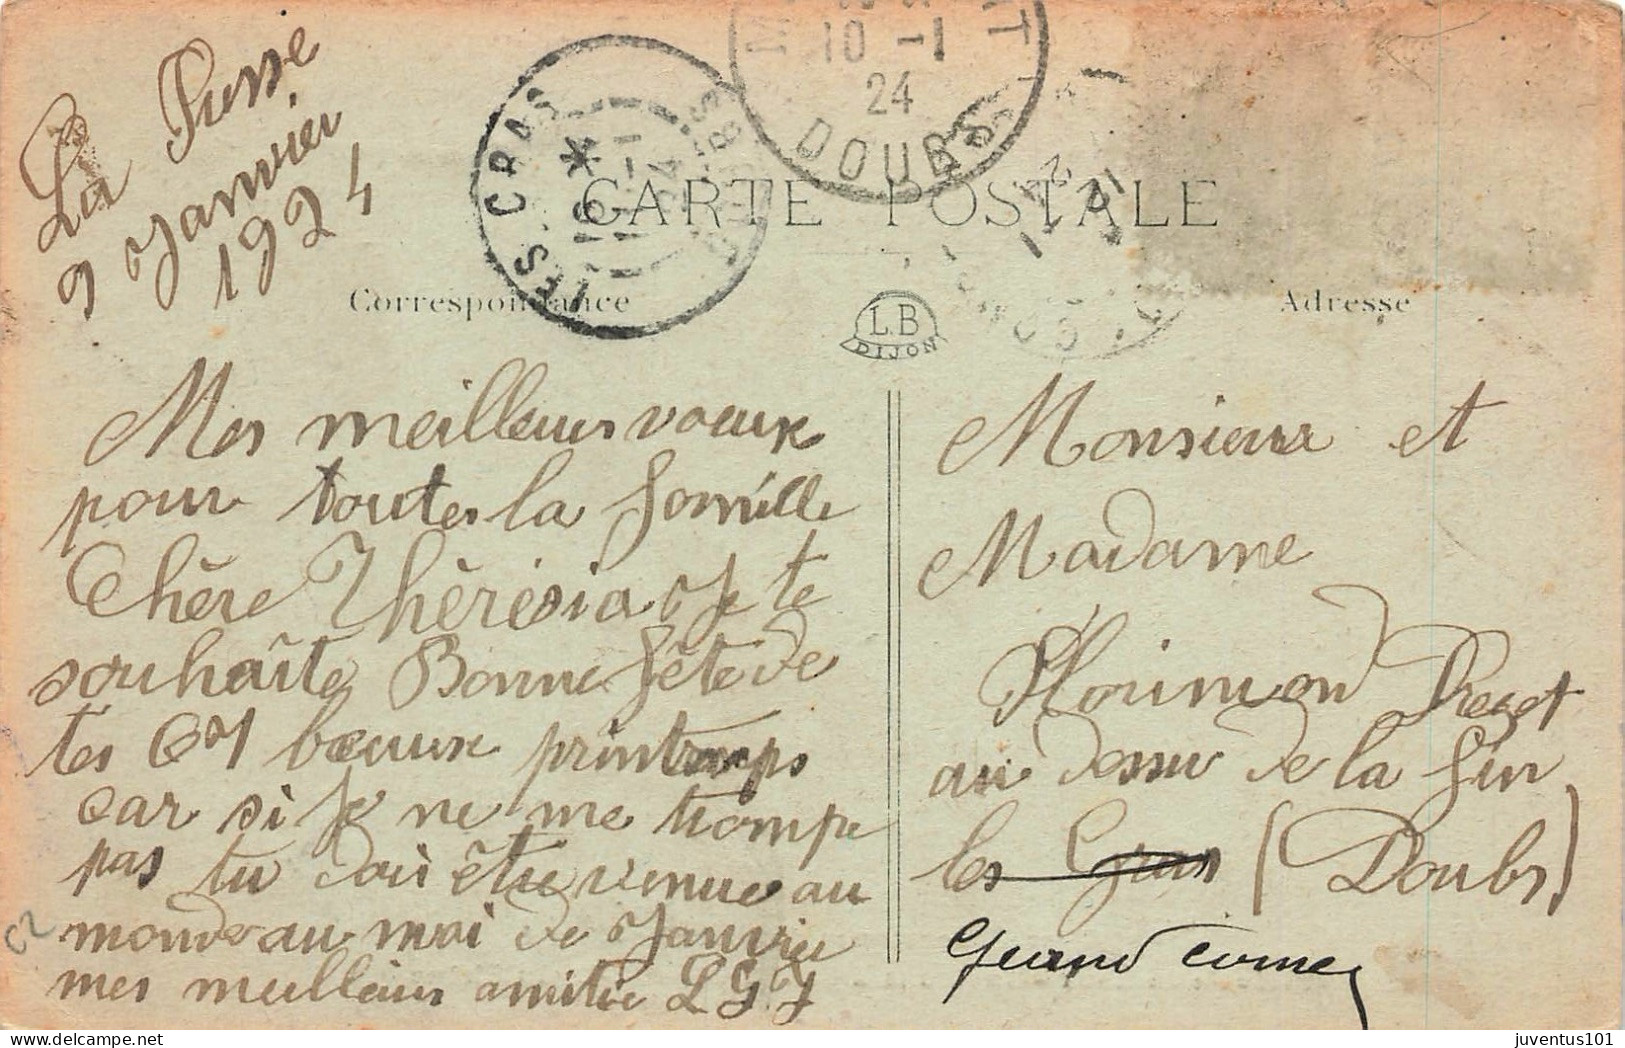 La Russe
9 Janvier
1924
LES CRAS
9 -1
24
DOUBS
10 -1
24
DOUBS
CARTE POSTALE
Correspondance
Adresse
L.B
DIJON
Mes meilleurs vœux
pour toutes la famille
Chère Thérèsia Je te
souhaîte Bonne fête de
tes 21 beaux printemps
car si Je ne me trompe
pas tu doit être venue au
monde au moi de Janvier
mes meilleurs amitié L G J
Monsieur et
Madame
Florimond
au dessu de la fin
les Gras (Doubs)
Grand Comé
juventus101